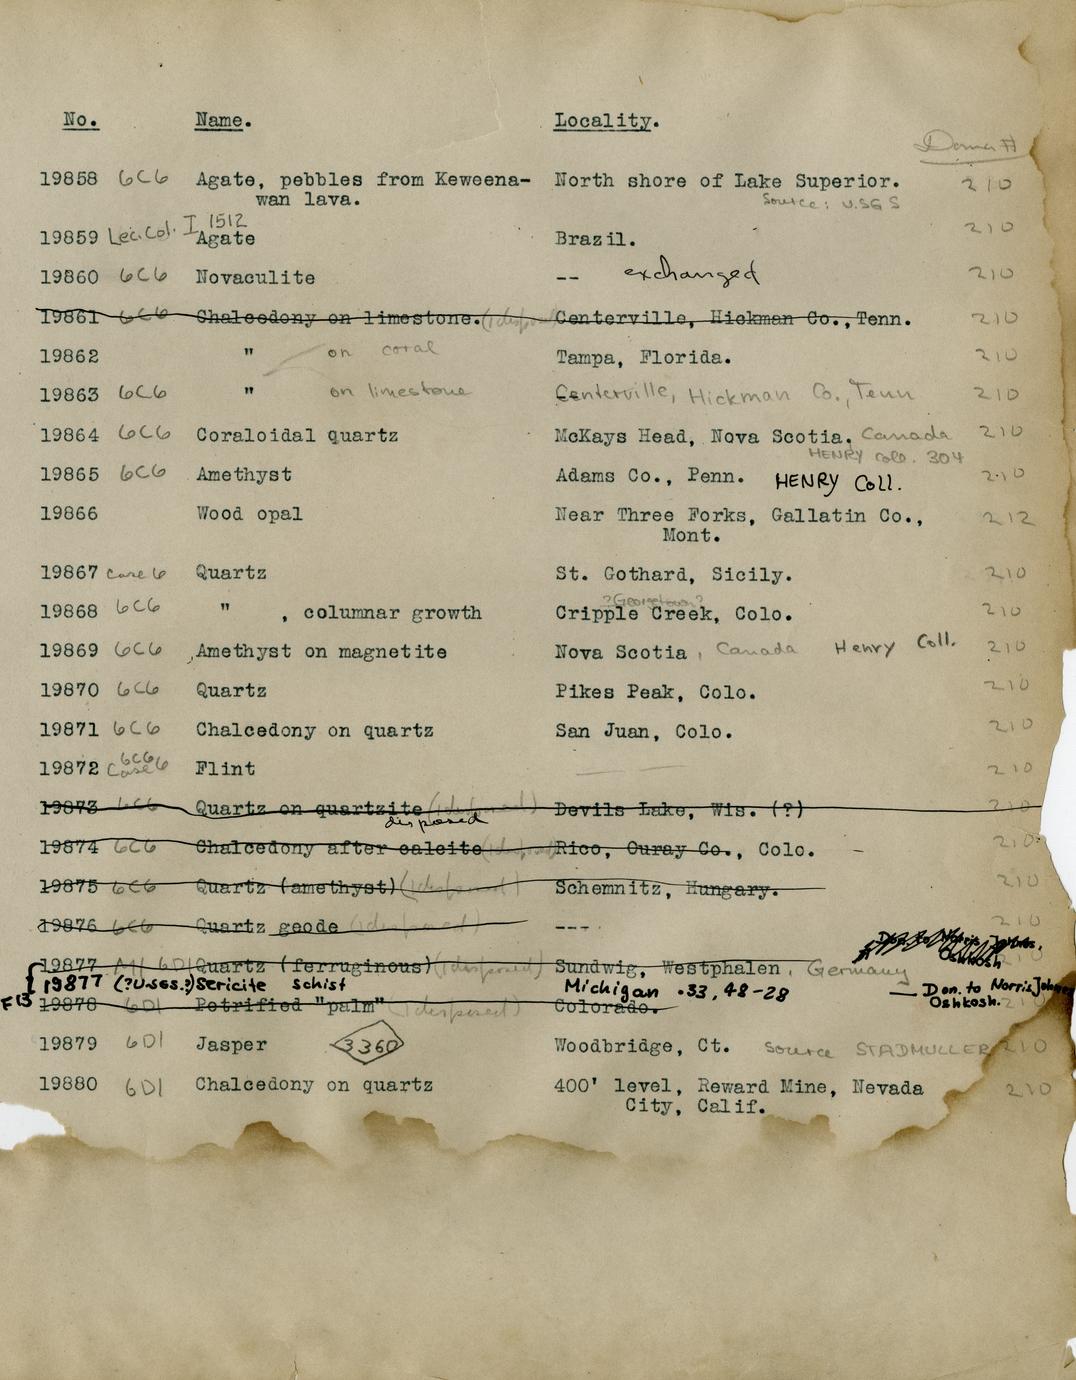 No. Name. Locality.
Donor #
19858 6C6 Agate, pebbles from Keweena- North shore of Lake Superior. 210
wan lava. Source: U.S.G.S
I 1512
19859 Lec. Col. Agate Brazil. 210
19860 6C6 Novaculite -- exchanged 210
19861 6C6 Chalcedony on limestone. (disposed) Centerville, Hickman Co., Tenn. 210
19862 " on coral Tampa, Florida. 210
19863 6C6 " on limestone Centerville, Hickman Co., Tenn 210
19864 6C6 Coraloidal quartz McKays Head, Nova Scotia. Canada 210
HENRY Coll. 304
19865 6C6 Amethyst Adams Co., Penn. HENRY Coll. 210
19866 Wood opal Near Three Forks, Gallatin Co., 212
Mont.
19867 Case 6 Quartz St. Gothard, Sicily. 210
?Georgetown?
19868 6C6 " , columnar growth Cripple Creek, Colo. 210
19869 6C6 Amethyst on magnetite Nova Scotia, Canada Henry Coll. 210
19870 6C6 Quartz Pikes Peak, Colo. 210
19871 6C6 Chalcedony on quartz San Juan, Colo. 210
6C6
19872 Case 6 Flint 210
19873 6C6 Quartz on quartzite (disposed) Devils Lake, Wis. (?) 210
disposed
19874 6C6 Chalcedony after calcite (disposed) Rico, Ouray Co., Colo. - 210
19875 6C6 Quartz (amethyst) (disposed) Schemnitz, Hungary. 210
19876 6C6 Quartz geode (disposed) --- 210
Don. to Norris Jones, Oshkosh
19877 6D1 Quartz (ferruginous) (disposed) Sundwig, Westphalen, Germany 210
19877 (?U.S.G.S.?) Sericite schist Michigan .33, 48-28 — Don. to Norris
Oshkosh.
F13
19878 6D1 Petrified "palm" (disposed) Colorado. 210
19879 6D1 Jasper 3360 Woodbridge, Ct. Source STADMULLER 210
19880 6D1 Chalcedony on quartz 400' level, Reward Mine, Nevada 210
City, Calif.